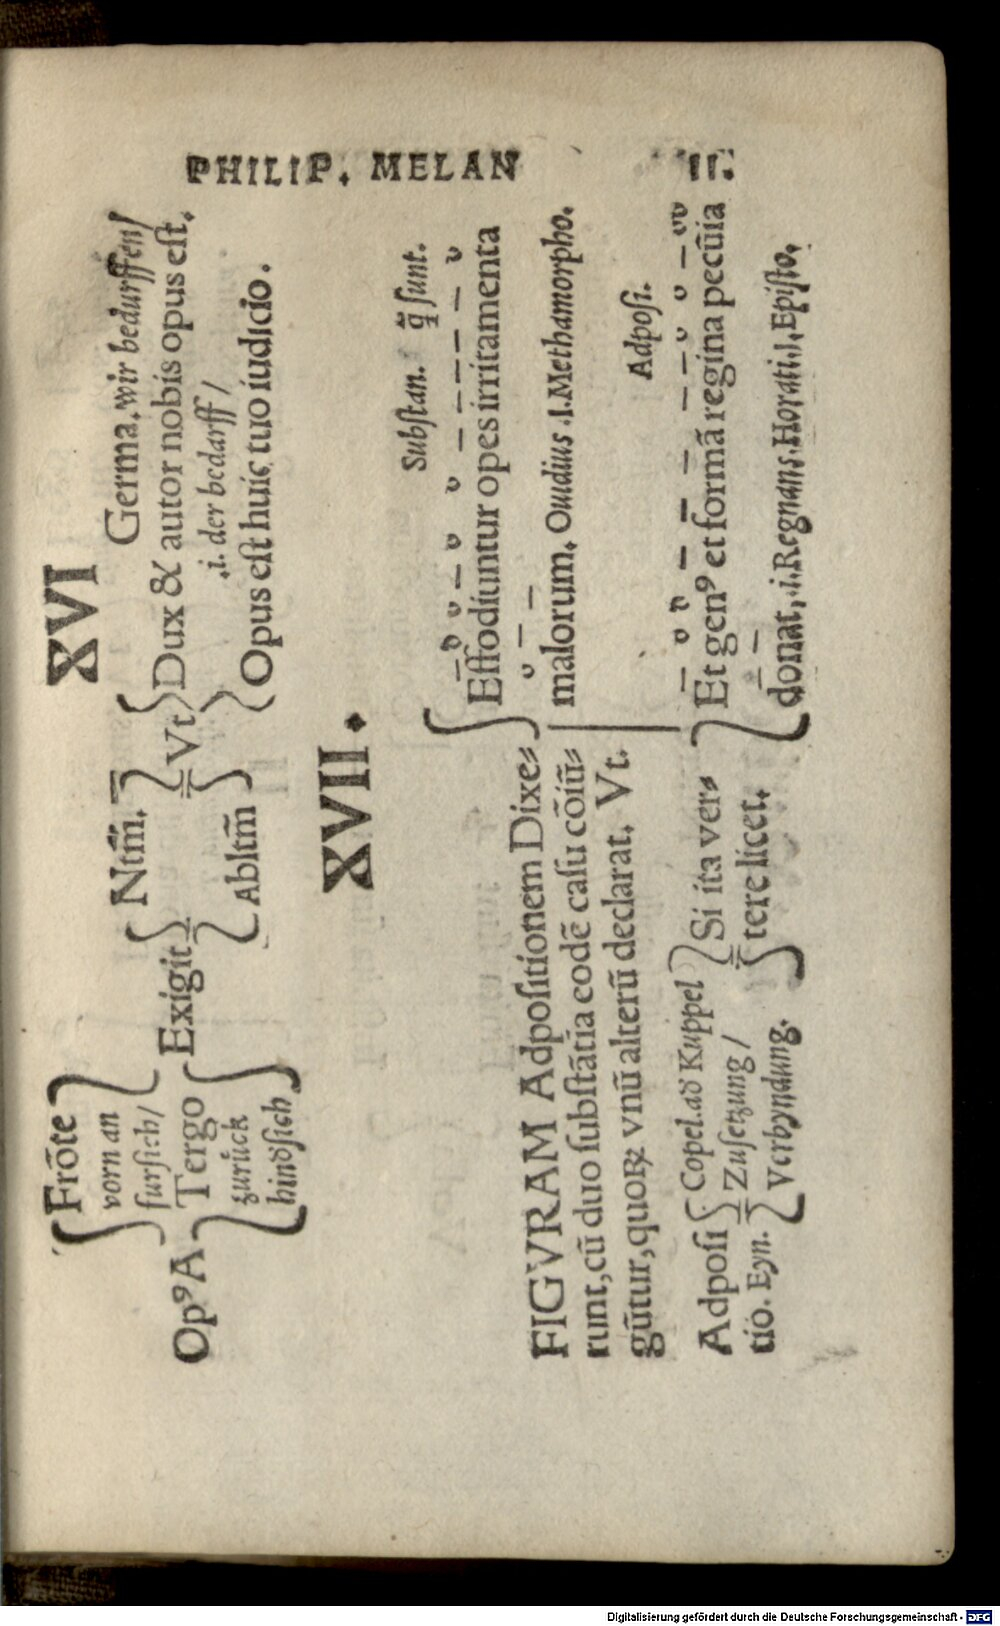 PHILIP. MELAN II.
XVI
Op⁹ A
Frōte
vorn an
fursich/
Tergo
zurůck
hindsich
Exigit
Ntm̃.
Abltm̃
Vt
Germa. wir bedurffen/
Dux & autor nobis opus est.
.i. der bedarff/
Opus est huic tuo iudicio.
XVII.
FIGVRAM Adpositionem Dixe⸗
runt, cū duo substātia codē casu cōiū⸗
gūtur, quoꝝ vnū alterū declarat. Vt.
Substan. q̃ sunt.
Effodiuntur opes irritamenta
malorum. Ouidius .I. Methamorpho.
Adposi
tio. Eyn.
Copel. ad Kuppel
Zusetzung/
Verbyndung.
Si ita ver⸗
tere licet.
Adposi.
Et gen⁹ et formā regina pecūia
donat, .i. Regnans. Horati. I, Episto,
Digitalisierung gefördert durch die Deutsche Forschungsgemeinschaft - DFG